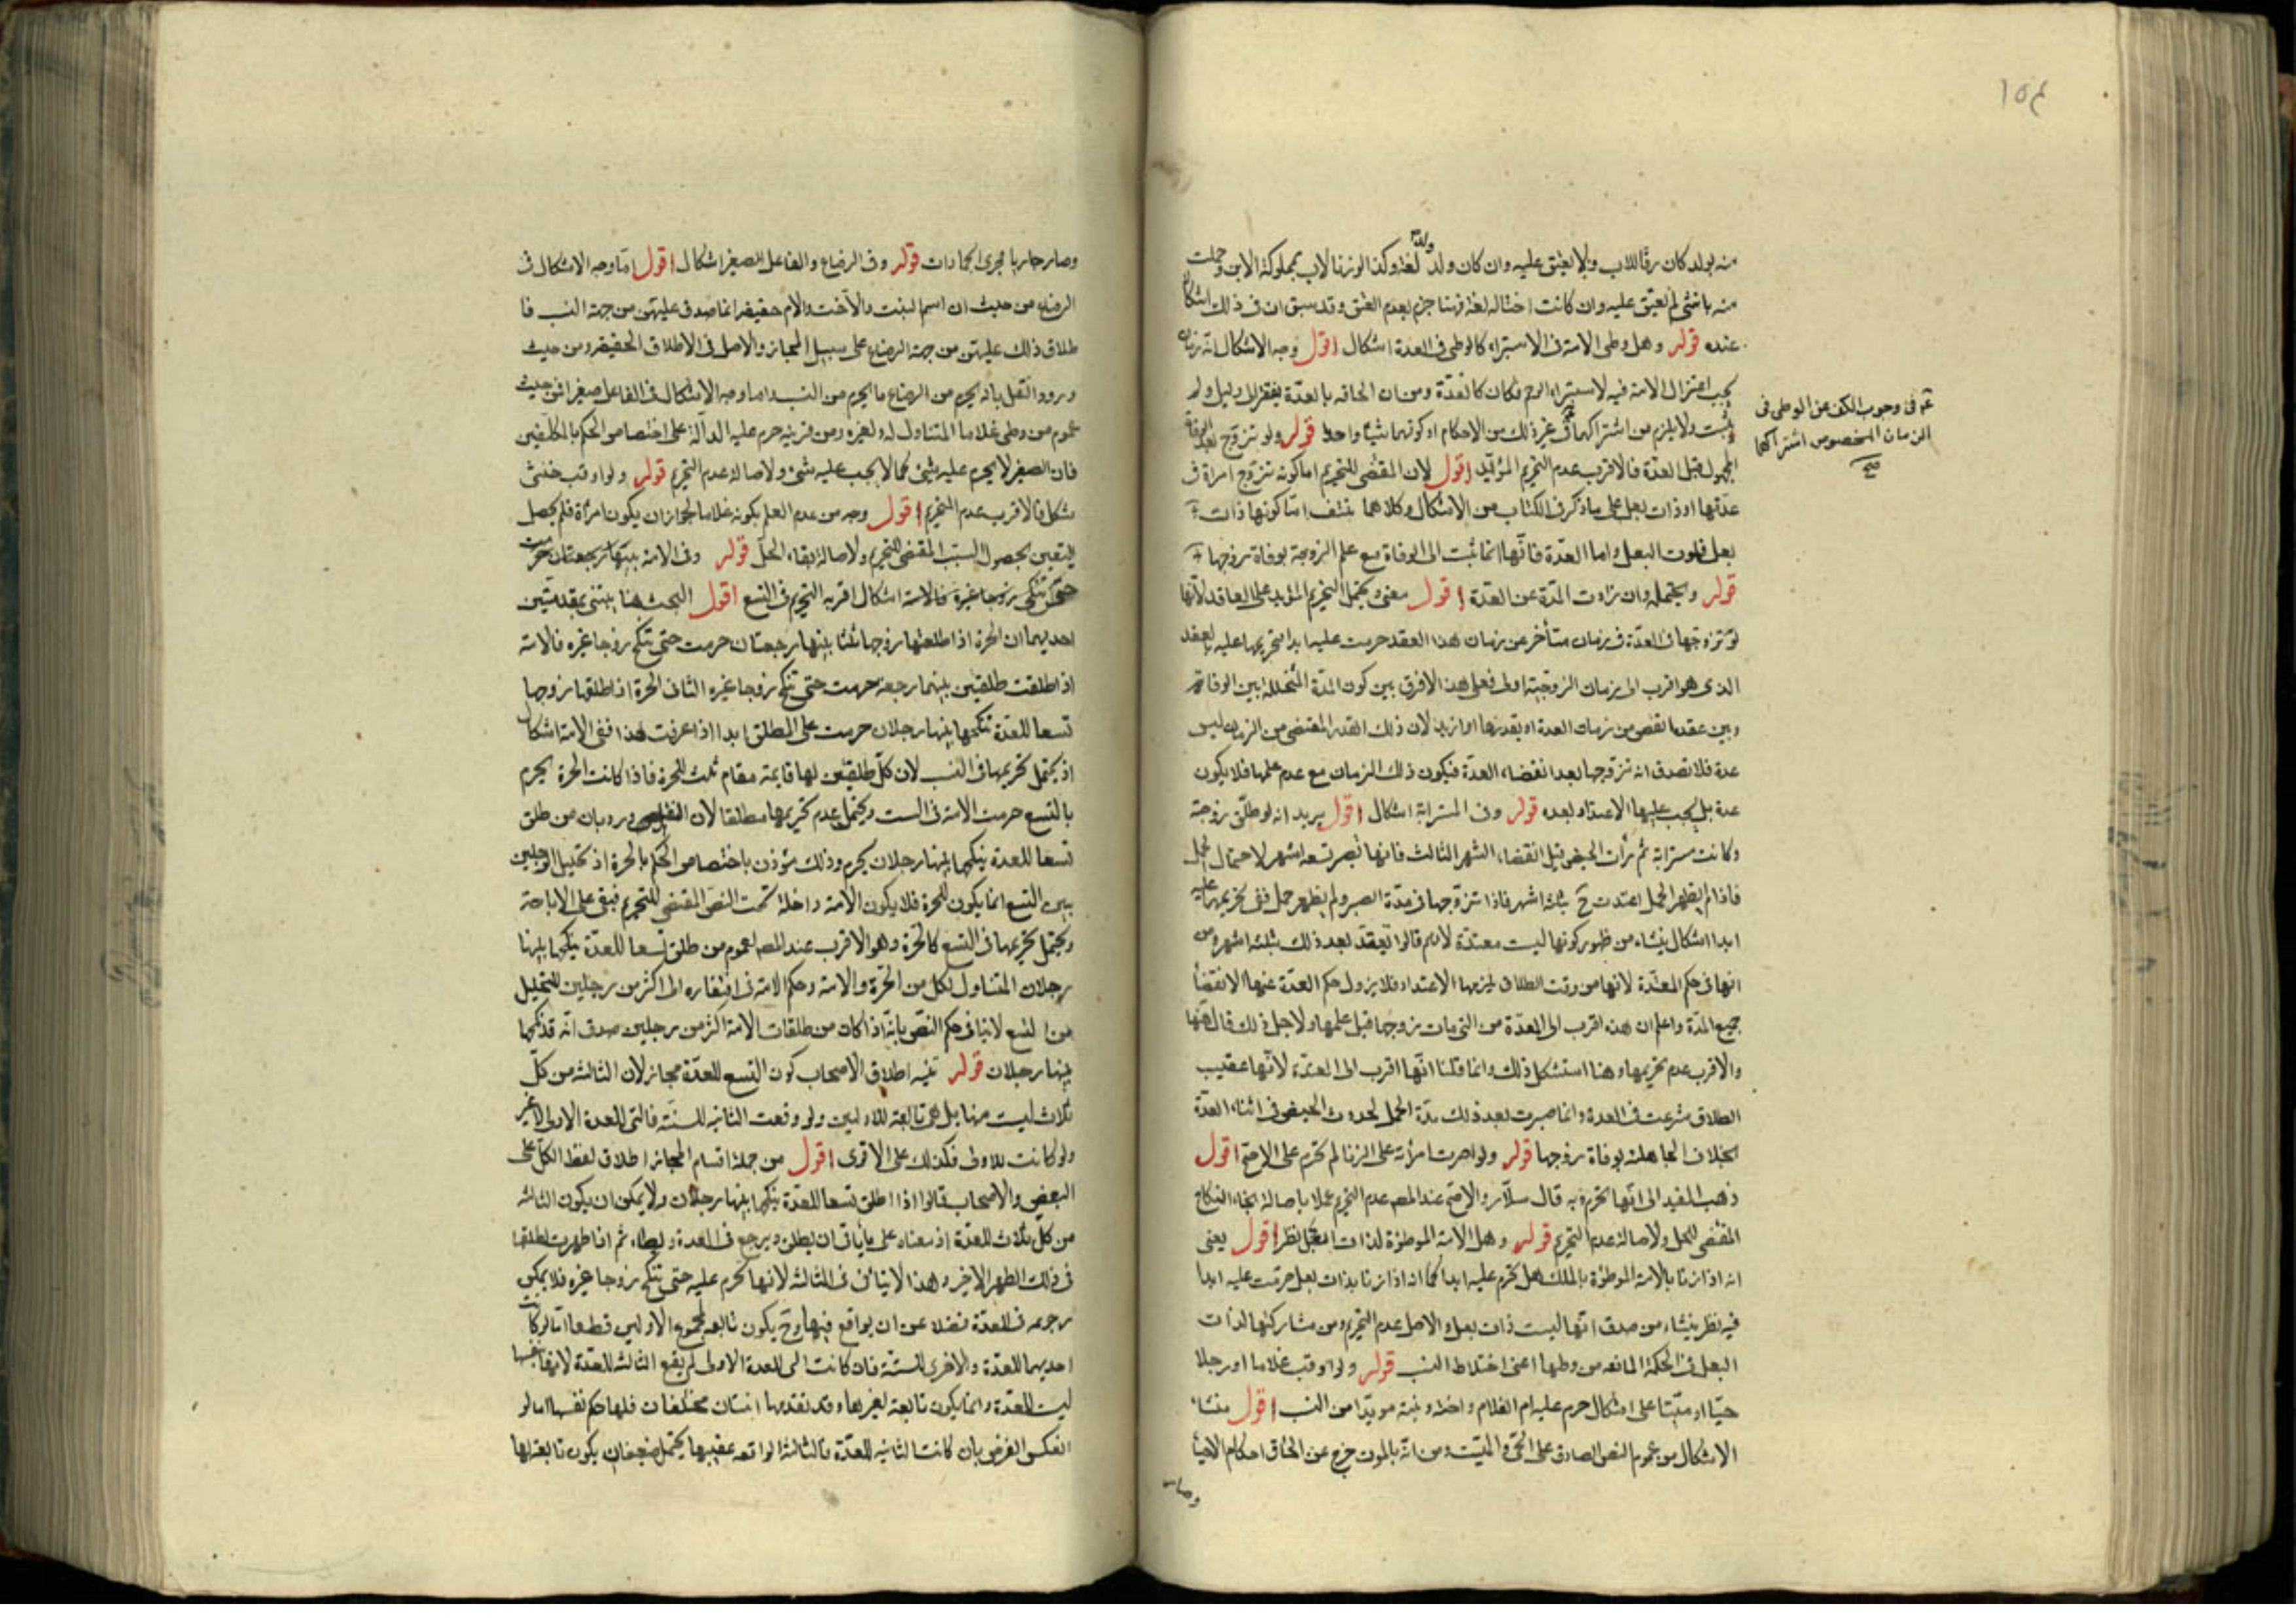 ١٥٤
منه بولد كان رقا للاب ولا يعتق عليه وان كان ولد ولده لغة وكذا لو زنا الاب بمملوكة الابن وحملت
منه بانثى لم يعتق عليه وان كانت اختا له لغة فهنا جزم بعدم العتق وقد سبق ان في ذلك اشكال
عنده قوله وهل وطى الامة في الاستبراء كالوطى في العدة اشكال اقول وجه الاشكال انه زمان
يجب اعتزال الامة فيه لاستبراء الرحم فكان كالعدة ومن ان الحاقه بالعدة يفتقر الى دليل ولم
يثبت ولا يلزم من اشتراكهما في غير ذلك من الاحكام او كونهما شيئا واحدا قوله ولو تزوج بعد الوفاة
في وجوب الكف عن الوطى في
الزمان المخصوص اشتراكهما
صح
المجهول قبل العدة فالاقرب عدم التحريم المؤبد اقول لان المقتضى للتحريم اما كونه تزوج امراة في
عدتها او ذات بعل على ما ذكر في الكتاب من الاشكال وكلاهما منتف اما كونها ذات
بعل فلموت البعل واما العدة فانها انما تثبت الى الوفاة مع علم الزوجة بوفاة زوجها
قوله ويحتمله وان زادت المدة عن العدة اقول معنى ويحتمل التحريم المؤبد على العاقد لانها
لو تزوجها في العدة في زمان متأخر عن زمان هذا العقد حرمت عليه ابدا فتحريمها عليه بالعقد
الذى هو اقرب الى زمان الزوجية اولى فعلى هذا لا فرق بين كون المدة المتخللة بين الوفاة
وبين عقدها نقص من زمان العدة او بقدرها او ازيد لان ذلك القدر المقتضى من الزمان ليس
عدة فلا تصدق انه تزوجها بعد انقضاء العدة فيكون ذلك الزمان مع عدم علمها فلا يكون
عدة بل يجب عليها الاعتداد بعده قوله وفي المسترابة اشكال اقول يريد انه لو طلق زوجته
وكانت مسترابة ثم رأت الحيض قبل انقضاء الشهر الثالث فانها تصبر تسعة اشهر لاحتمال الحمل
فاذا لم يظهر الحمل اعتدت ح بثلثة اشهر فاذا تزوجها في مدة الصبر ولم يظهر حمل ففى تحريمها عليه
ابدا اشكال ينشاء من ظهور كونها ليست معتدة لانهم قالوا تعتد بعد ذلك بثلثة اشهر ومن
انها في حكم المعتدة لانها من وقت الطلاق يلزمها الاعتداد فلا يزول حكم العدة عنها الا بانقضاء
جميع المدة واعلم ان هذه اقرب الى العدة من التي مات زوجها قبل علمها ولاجل ذلك قال فيها
والاقرب عدم تحريمها وهنا استشكل ذلك وانما قلنا انها اقرب الى العدة لانها عقيب
الطلاق شرعت في العدة وانما صبرت بعد ذلك مدة الحمل لحدوث الحيض في اثناء العدة
بخلاف الجاهلة بوفاة زوجها قوله ولو اصرت امرأته على الزنا لم تحرم على الاصح اقول
ذهب المفيد الى انها تحرم وبه قال سلار والاصح عند المصـ عدم التحريم عملا باصالة بقاء النكاح
المقتضى للحل ولاصالة عدم التحريم قوله وهل الامة الموطوءة لذات البعل نظر اقول يعنى
انه اذا زنا بالامة الموطوءة بالملك هل تحرم عليه ابدا كما انه اذا زنا بذات بعل حرمت عليه ابدا
فيه نظر ينشاء من صدق انها ليست ذات بعل والاصل عدم التحريم ومن مشاركتها لذات
البعل في الحكمة المانعة من وطيها اعنى اختلاط النسب قوله ولو اوقب غلاما او رجلا
حيا او ميتا على اشكال حرم عليه ام الغلام واخته وبنته مؤبدا من النسب اقول منشاء
الاشكال من عموم النص الصادق على الحى والميت ومن انه بالموت خرج عن الحاق احكام الاحياء
وصار
وصار جاريا مجرى الجمادات قوله وفي الرضاع والفاعل الصغير اشكال اقول اما وجه الاشكال في
الرضاع من حيث ان اسم البنت والاخت والام حقيقة انما صدق عليهن من جهة النسب فا
طلاق ذلك عليهن من جهة الرضاع على سبيل المجاز والاصل في الاطلاق الحقيقة ومن حيث
ورود النقل بانه يحرم من الرضاع ما يحرم من النسب واما وجه الاشكال في الفاعل صغيرا فمن حيث
عموم من وطى غلاما المتناول له ولغيره ومن قرينة حرم عليه الدالة على اختصاص الحكم بالمكلفين
فان الصغير لا يحرم عليه شئ كما لا يجب عليه شئ ولاصالة عدم التحريم قوله ولو اوقب خنثى
مشكل فالاقرب عدم التحريم اقول وجهه من عدم العلم بكونه غلاما لجواز ان يكون امرأة فلم يحصل
اليقين بحصول السبب المقتضى للتحريم ولاصالة بقاء الحل قوله وفي الامة بينهما رجعتان حرمت
حتى تنكح زوجا غيره فالامة اشكال اقربه التحريم في التسع اقول البحث هنا يبتنى بمقدمتين
احديهما ان الحرة اذا طلقها زوجها ثلثا بينها رجعتان حرمت حتى تنكح زوجا غيره فالامة
اذا طلقت طلقتين بينهما رجعة حرمت حتى تنكح زوجا غيره الثاني الحرة اذا طلقها زوجها
تسعا للعدة تنكحها بينها رجلان حرمت على المطلق ابدا اذا عرفت هذا ففى الامة اشكال
اذ يحتمل تحريمها في النسب لان كل طلقتين لها قايمة مقام ثلث للحرة فاذا كانت الحرة يحرم
بالتسع حرمت الامة في الست ويحتمل عدم تحريمها مطلقا لان النص ورد بان من طلق
تسعا للعدة ينكحها بينها رجلان يحرم وذلك مؤذن باختصاص الحكم بالحرة اذ تحليل الرجلين
بين التسع انما يكون للحرة فلا يكون الامة داخلة تحت النص المقتضى للتحريم فبقى على الاباحة
ويحتمل تحريمها في التسع كالحرة وهو الاقرب عند المصـ لعموم من طلق تسعا للعدة ينكحها بينها
رجلان المتناول لكل من الحرة والامة وحكم الامة في افتقاره الى اكثر من رجلين للتحليل
من التسع لا ينافى حكم النص بانه اذا كان من طلقات الامة اكثر من رجلين صدق انه قد نكحها
بينها رجلان قوله تنبيه اطلاق الاصحاب كون التسع للعدة مجاز لان الثالثة من كل
ثلاث ليست منها بل هى تابعة للاوليين ولو وقعت الثانية للسنة فالتى للعدة الاولى لا غير
ولو كانت للاولى فكذلك على الاقوى اقول من جملة اقسام المجاز اطلاق لفظ الكل على
البعض والاصحاب قالوا اذا اطلق تسعا للعدة ينكحها بينها رجلان ولا يمكن ان يكون الثالثة
من كل ثلاث للعدة اذ معناه على ما يأتى ان يطلق ويرجع في العدة ويطاء ثم اذا طهرت طلقها
في ذلك الطهر الاخير وهذا لا يتأتى في الثالثة لانها تحرم عليه حتى تنكح زوجا غيره فلا يمكن
رجوعه في العدة فضلا عن ان يواقع فيها وح يكون تابعه لمجموع الاوليين قطعا اما لو كانت
احديهما للعدة والاخرى للسنة فان كانت التى للعدة الاولى لم يقع الثالثة للعدة لانها نفسها
ليست للعدة وانما يكون تابعة لغيرها وقد تقدمها اثنتان مختلفتان فلها حكم نفسها اما لو
انعكس الفرض بان كانت الثانية للعدة فالثالثة الواقعة عقيبها يحتمل ضعيفا ان يكون تابعة لها